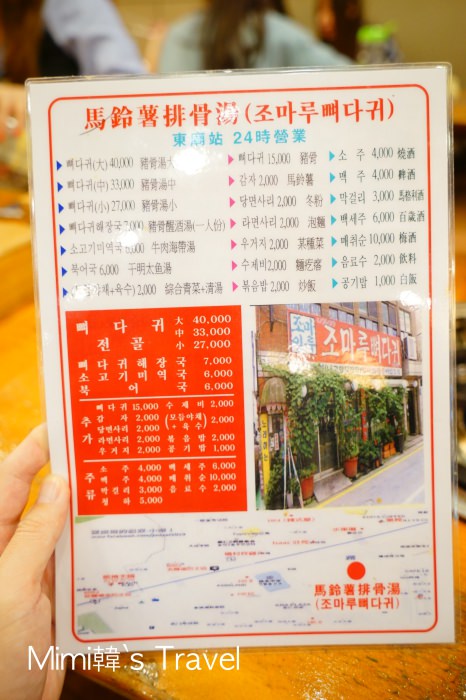 馬鈴薯排骨湯(조마루뼈다귀)
東廟站 24時營業
뼈다귀(大) 40,000 豬骨湯大 뼈다귀 15,000 豬骨 소 주 4,000 燒酒
뼈다귀(中) 33,000 豬骨湯中 감자 2,000 馬鈴薯 맥 주 4,000 啤酒
뼈다귀(小) 27,000 豬骨湯小 당면사리 2,000 冬粉 막걸리 3,000 馬格利酒
뼈다귀해장국 7,000 豬骨醒酒湯(一人份) 라면사리 2,000 泡麵 백세주 6,000 百歲酒
소고기미역국 6,000 牛肉海帶湯 우거지 2,000 某種菜 매취순 10,000 梅酒
북어국 6,000 干明太魚湯 수제비 2,000 麵疙瘩 음료수 2,000 飲料
야채+육수) 2,000 綜合青菜+清湯 볶음밥 2,000 炒飯 공기밥 1,000 白飯
뼈다귀 大 40,000
中 33,000
전골 小 27,000
뼈다귀해장국 7,000
소고기미역국 6,000
북어국 6,000
추가
뼈다귀 15,000 수제비 2,000
감자 2,000 (모듬야채 + 육수) 2,000
당면사리 2,000
라면사리 2,000 볶음밥 2,000
우거지 2,000 공기밥 1,000
주류
소주 4,000 백세주 6,000
맥주 4,000 매취순 10,000
막걸리 3,000 음료수 2,000
청하 5,000
조마루뼈다귀
馬鈴薯排骨湯
(조마루뼈다귀)
Mimi韓`s Travel